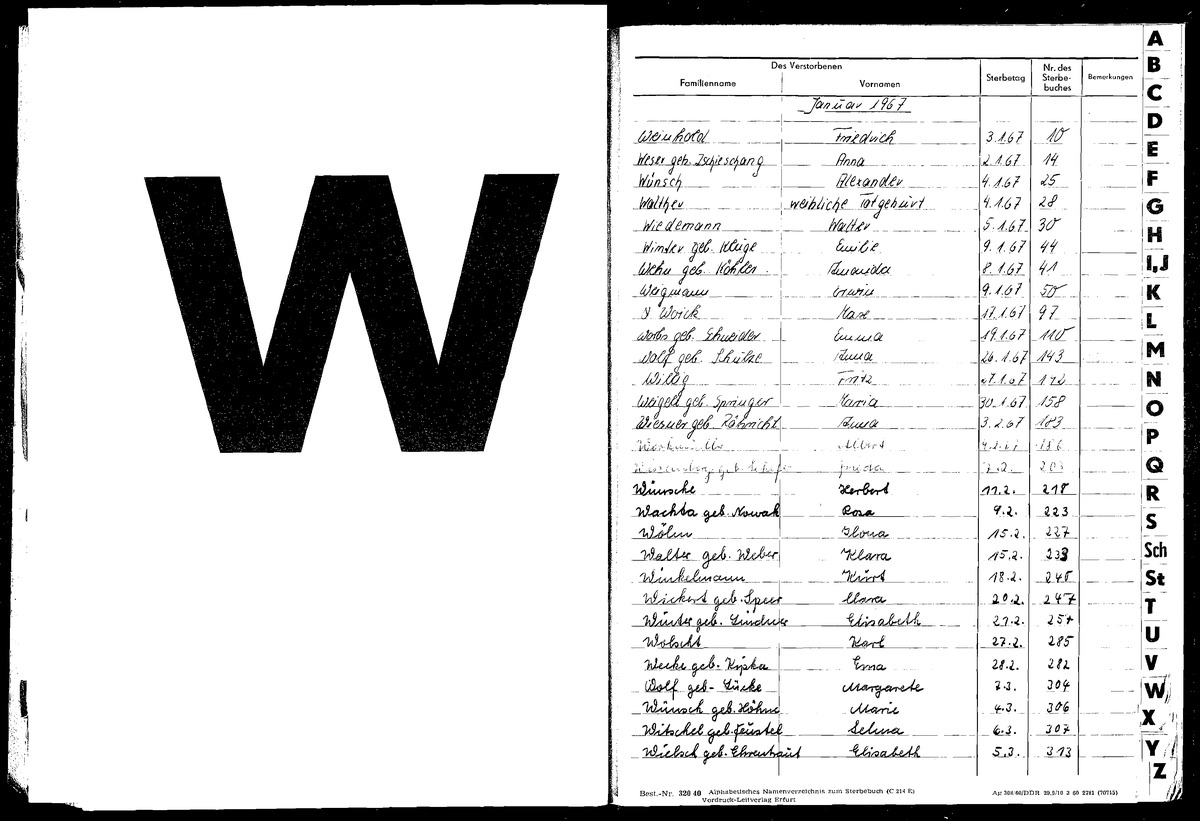 W
Des Verstorbenen
Familienname Vornamen Sterbetag Nr. des Sterbe-buches Bemerkungen
Januar 1967
Weinhold Friedrich 3.1.67 10
Weser geb. Zschieschang Anna 2.1.67 14
Wünsch Alexander 4.1.67 25
Walther weibliche Totgeburt 4.1.67 28
Wiedemann Walter 5.1.67 30
Winter geb. Kluge Emilie 9.1.67 44
geb. Köhler 8.1.67 41
Wegmann Erwin 9.1.67 50
17.1.67 97
geb. Schneider Emma 19.1.67 110
Wolf geb. Schulze Anna 26.1.67 143
Willig Fritz
Weigelt geb. Springer Maria 30.1.67 158
Wiesner geb. Röhricht Anna 3.2.67 183
Albert
geb. Frieda
Wünsche Herbert 11.2. 218
Wachta geb. Nowak Rosa 9.2. 223
Wölm Ilona 15.2. 227
Walter geb. Weber Klara 15.2. 233
Winkelmann Kurt 18.2. 240
Wickert geb. Speer Clara 20.2. 247
Winter geb. Lindner Elisabeth 21.2. 257
Wolscht Karl 27.2. 285
Wecke geb. Erna 28.2. 282
Wolf geb. Lücke Margarete 2.3. 304
Wünsch geb. Höhne Marie 4.3. 306
Witschel geb. Feustel Selma 6.3. 307
geb. Ehrentraut Elisabeth 5.3. 313
Best.-Nr. 320 40 Alphabetisches Namenverzeichnis zum Sterbebuch (C 214 E)
Vordruck-Leitverlag Erfurt
A
B
C
D
E
F
G
H
I,J
K
L
M
N
O
P
Q
R
S
Sch
St
T
U
V
W
X
Y
Z